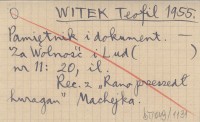 WITEK Teofil 1955.
Pamiętnik i dokument. —
Za Wolność i Lud ( )
nr 11: 20, il.
Rec. z „Rano przeszedł
huragan" Machejka.